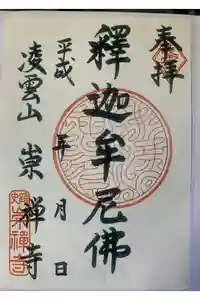 奉拝
釋迦牟尼佛
平成 年 月 日
凌雲山 崇禅寺